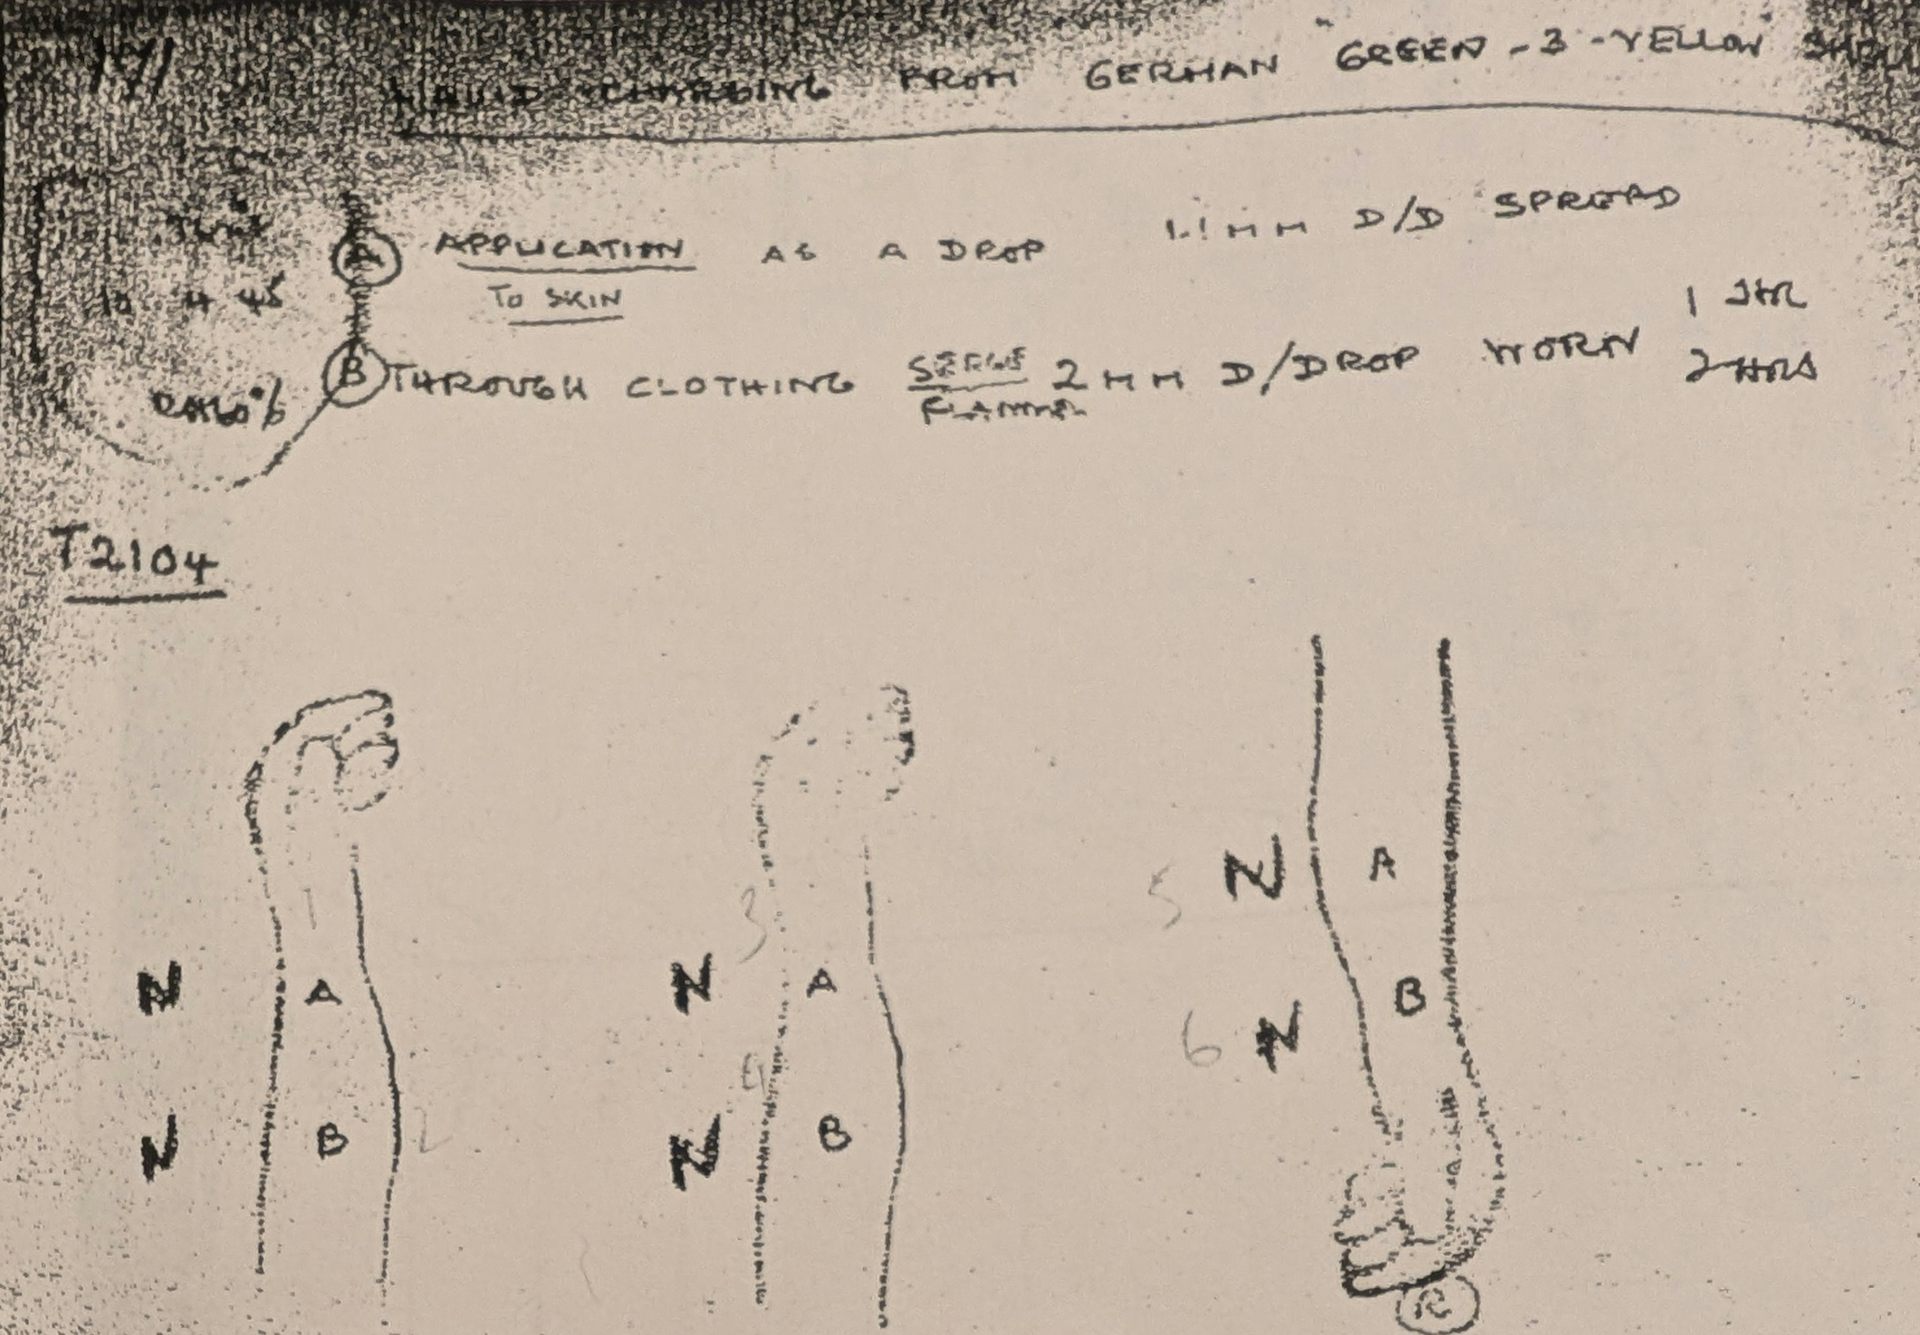 171
LIQUID CHARGING FROM GERMAN GREEN - 3 - YELLOW SHELL
A APPLICATION AS A DROP 1.1 MM D/D SPREAD
TO SKIN
10 4 45
1 HR
B THROUGH CLOTHING SERGE 2 MM D/DROP WORN 2 HRS
FLANNEL
RH60%
T2104
1
3
5 N A
N A
N A
B
6 N
4
N B 2
N B
C